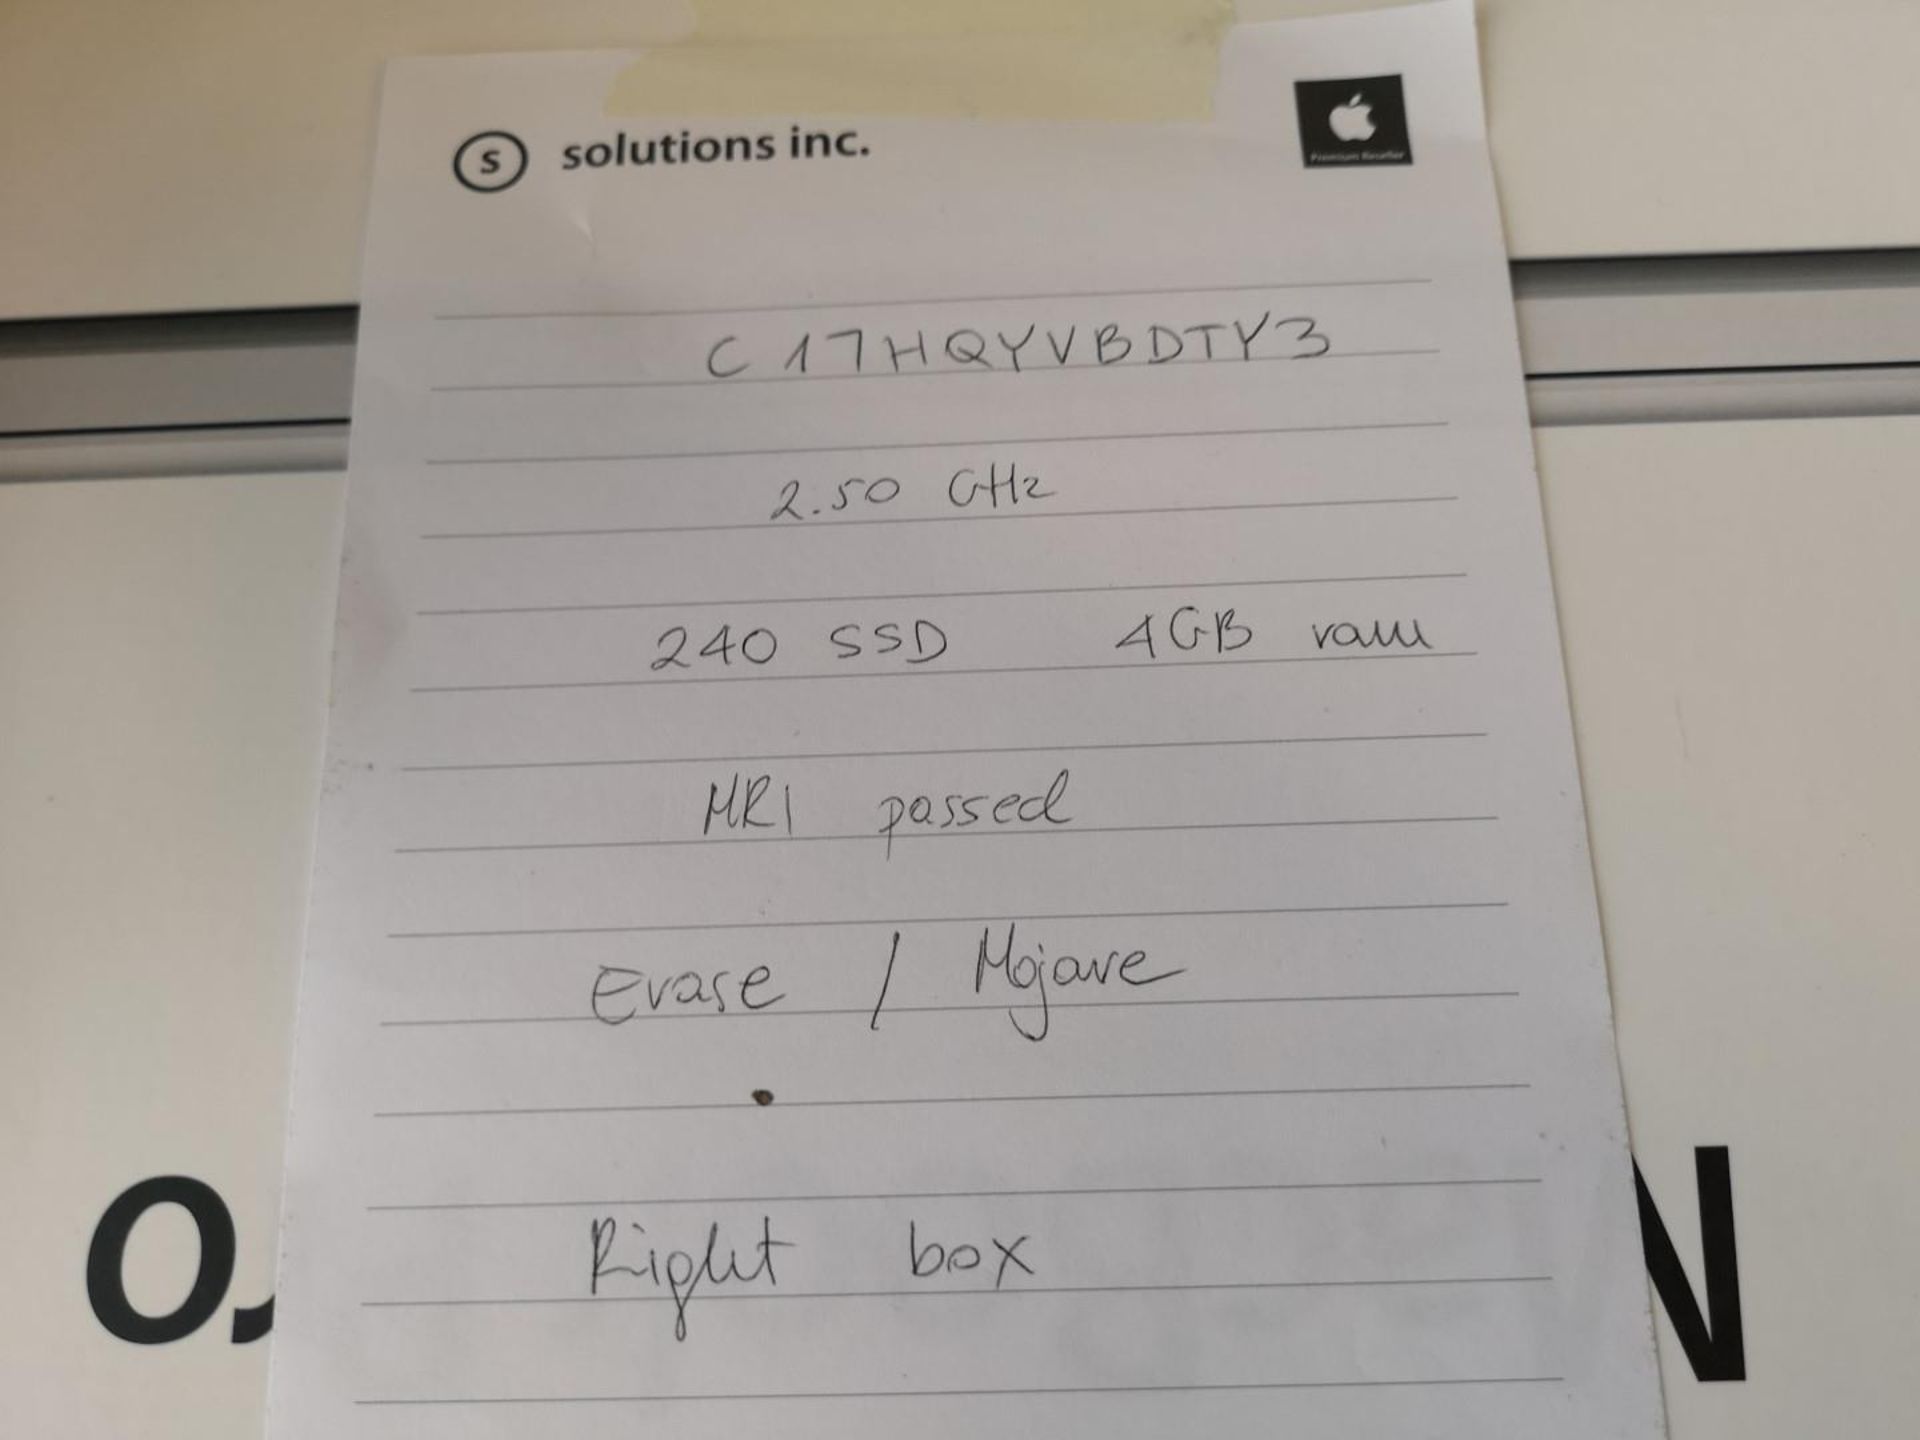 S solutions inc.
Premium Reseller
C17HQYVBDTY3
2.50 GHz
240 SSD 4GB ram
MRI passed
Erase / Mojave
Right box